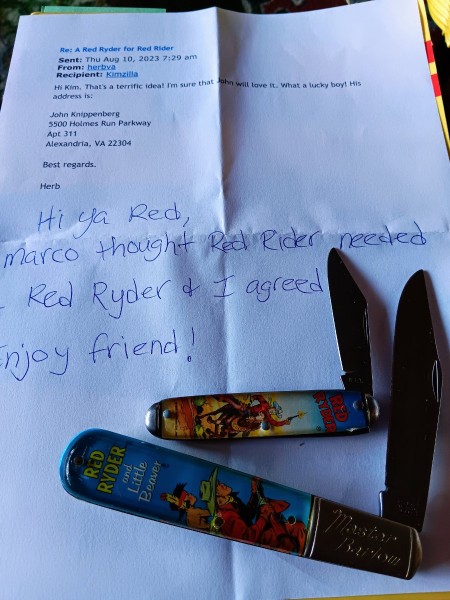 Re: A Red Ryder for Red Rider
Sent: Thu Aug 10, 2023 7:29 am
From: herbva
Recipient: Kimzilla
Hi Kim. That's a terrific idea! I'm sure that John will love it. What a lucky boy! His
address is:
John Knippenberg
5500 Holmes Run Parkway
Apt 311
Alexandria, VA 22304
Best regards.
Herb
Hi ya Red,
marco thought Red Rider needed
Red Ryder & I agreed
Enjoy friend!
RED
RYDER
RED
RYDER
and
Little
Beaver
Master
Barlow